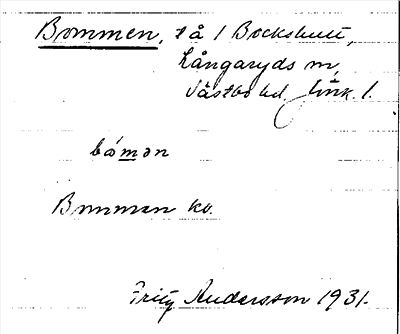 Bommen, t å 1 Bockshult,
Långaryds sn,
Västbo hd, Jönk. l.
bómən
Bommen ko.
Fritz Andersson 1931.